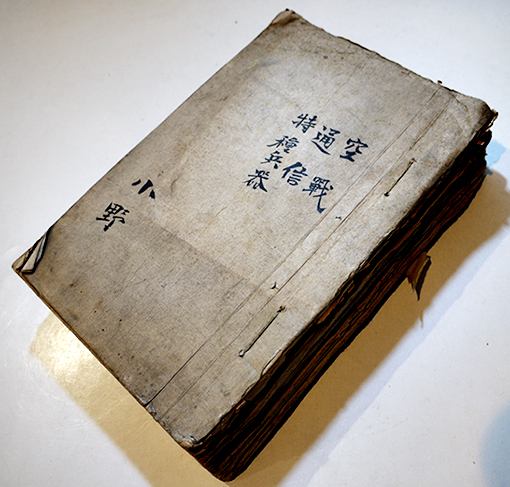 空戰
通信
特種兵器
小野